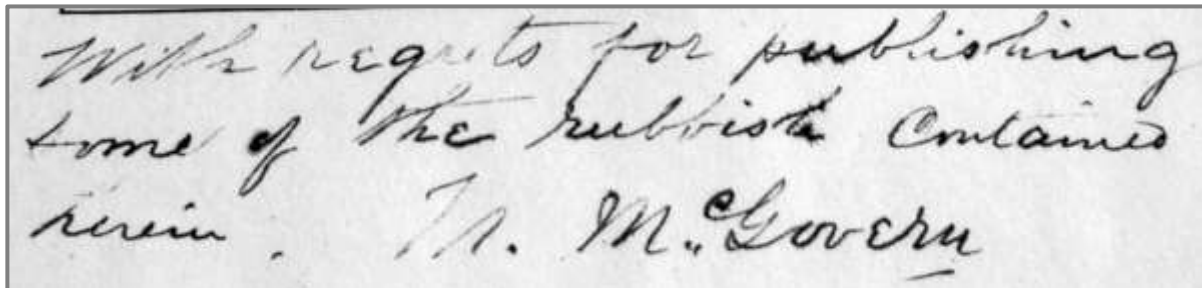 With regrets for publishing
some of the rubbish contained
herein. M. McGovern